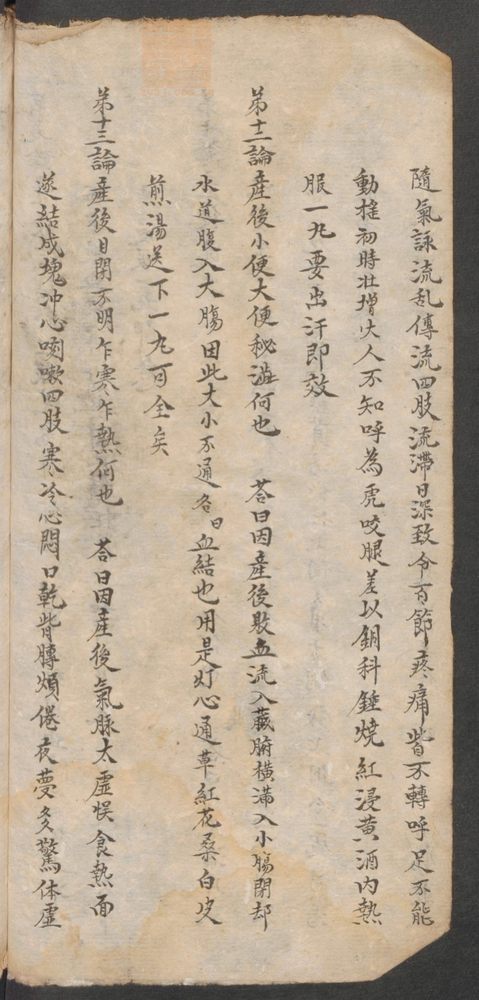 隨氣詠流乱傳流四肢流滯日深致令百節疼痛皆不轉呼足不能
動摇初時壯增火人不知呼為虎咬腿差以銅科錘燒紅浸黄酒内熱
服一丸要出汗即效
第十二論產後小便大便秘澁何也 荅曰因產後敗血流入藏腑橫满入小腸閉却
水道腹入大腸因此大小不通名曰血結也用是灯心通草紅花桑白皮
煎湯送下一丸可全矣
第十三論產後目閉不明乍寒乍熱何也 荅曰因產後氣脉太虛悮食熱面
遂結成塊冲心咳嗽四肢寒冷心悶口乾背膊煩倦夜夢多驚体虛